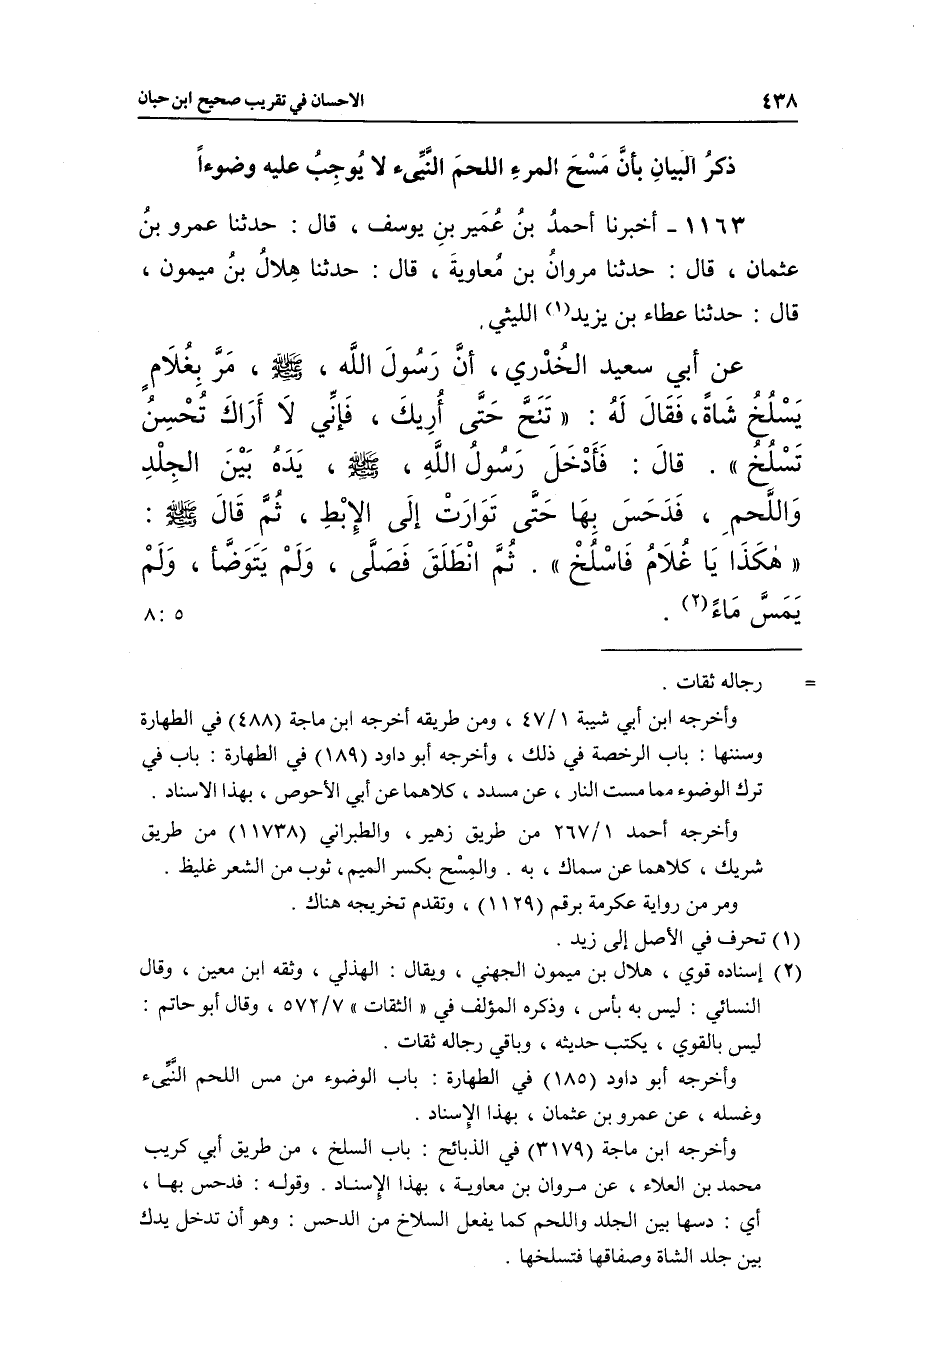 ٤٣٨ الاحسان في تقريب صحيح ابن حبان
ذكرُ البيانِ بأنَّ مَسْحَ المرءِ اللحمَ النَّيِّىء لا يُوجِبُ عليه وضوءاً
١١٦٣ ـ أخبرنا أحمدُ بنُ عُمَيرِ بنِ يوسف ، قال : حدثنا عمرو بنُ
عثمان ، قال : حدثنا مروانُ بن مُعاويةَ ، قال : حدثنا هِلالُ بنُ ميمون ،
قال : حدثنا عطاء بن يزيد(١) الليثي .
عن أبي سعيد الخُدْري ، أنَّ رَسُولَ اللَّه ، ﷺ ، مَرَّ بِغُلَامٍ
يَسْلُخُ شَاةً، فَقَالَ لَهُ : « تَنَحَّ حَتَّى أُرِيكَ ، فَإِنِّي لَا أَرَاكَ تُحْسِنُ
تَسْلُخُ » . قالَ : فَأَدْخَلَ رَسُولُ اللَّهِ ، ﷺ ، يَدَهُ بَيْنَ الجِلْدِ
وَاللَّحمِ ، فَدَحَسَ بِهَا حَتَّى تَوَارَتْ إِلَى الإِبْطِ ، ثُمَّ قَالَ ﷺ :
« هٰكَذَا يَا غُلَامُ فَاسْلُخْ » . ثُمَّ انْطَلَقَ فَصَلَّى ، وَلَمْ يَتَوَضَّأ ، وَلَمْ
يَمَسَّ مَاءً(٢) . ٥ : ٨
= رجاله ثقات .
وأخرجه ابن أبي شيبة ٤٧/١ ، ومن طريقه أخرجه ابن ماجة (٤٨٨) في الطهارة
وسننها : باب الرخصة في ذلك ، وأخرجه أبو داود (١٨٩) في الطهارة : باب في
ترك الوضوء مما مست النار ، عن مسدد ، كلاهما عن أبي الأحوص ، بهذا الاسناد .
وأخرجه أحمد ٢٦٧/١ من طريق زهير ، والطبراني (١١٧٣٨) من طريق
شريك ، كلاهما عن سماك ، به . والمِسْح بكسر الميم، ثوب من الشعر غليظ .
ومر من رواية عكرمة برقم (١١٢٩) ، وتقدم تخريجه هناك .
(١) تحرف في الأصل إلى زيد .
(٢) إسناده قوي ، هلال بن ميمون الجهني ، ويقال : الهذلي ، وثقه ابن معين ، وقال
النسائي : ليس به بأس ، وذكره المؤلف في « الثقات » ٥٧٢/٧ ، وقال أبو حاتم :
ليس بالقوي ، يكتب حديثه ، وباقي رجاله ثقات .
وأخرجه أبو داود (١٨٥) في الطهارة : باب الوضوء من مس اللحم النَّيِّىء
وغسله ، عن عمرو بن عثمان ، بهذا الإسناد .
وأخرجه ابن ماجة (٣١٧٩) في الذبائح : باب السلخ ، من طريق أبي كريب
محمد بن العلاء ، عن مروان بن معاوية ، بهذا الإسناد . وقوله : فدحس بها ،
أي : دسها بين الجلد واللحم كما يفعل السلاخ من الدحس : وهو أن تدخل يدك
بين جلد الشاة وصفاقها فتسلخها .